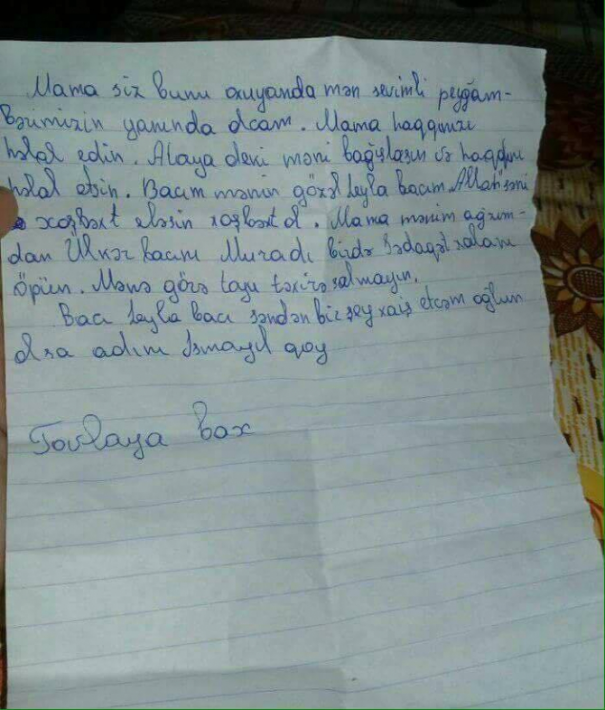 Mama siz bunu oxuyanda mən sevimli peyğəm-
bərimizin yanında olcam. Mama haqqınızı
halal edin. Ataya deni məni bağışlasın və haqqını
halal etsin. Bacım mənim gözəl Leyla bacım Allah səni
xoşbəxt eləsin xoşbəxt ol. Mama mənim ağzım-
dan Ülkər bacımı Muradı birdə Sədaqət xalanı
öpün. Mənə görə toyu təxirə salmayın.
Bacı Leyla bacı səndən bir şey xaiş etcəm oğlun
olsa adını İsmayıl qoy
Tovlaya bax